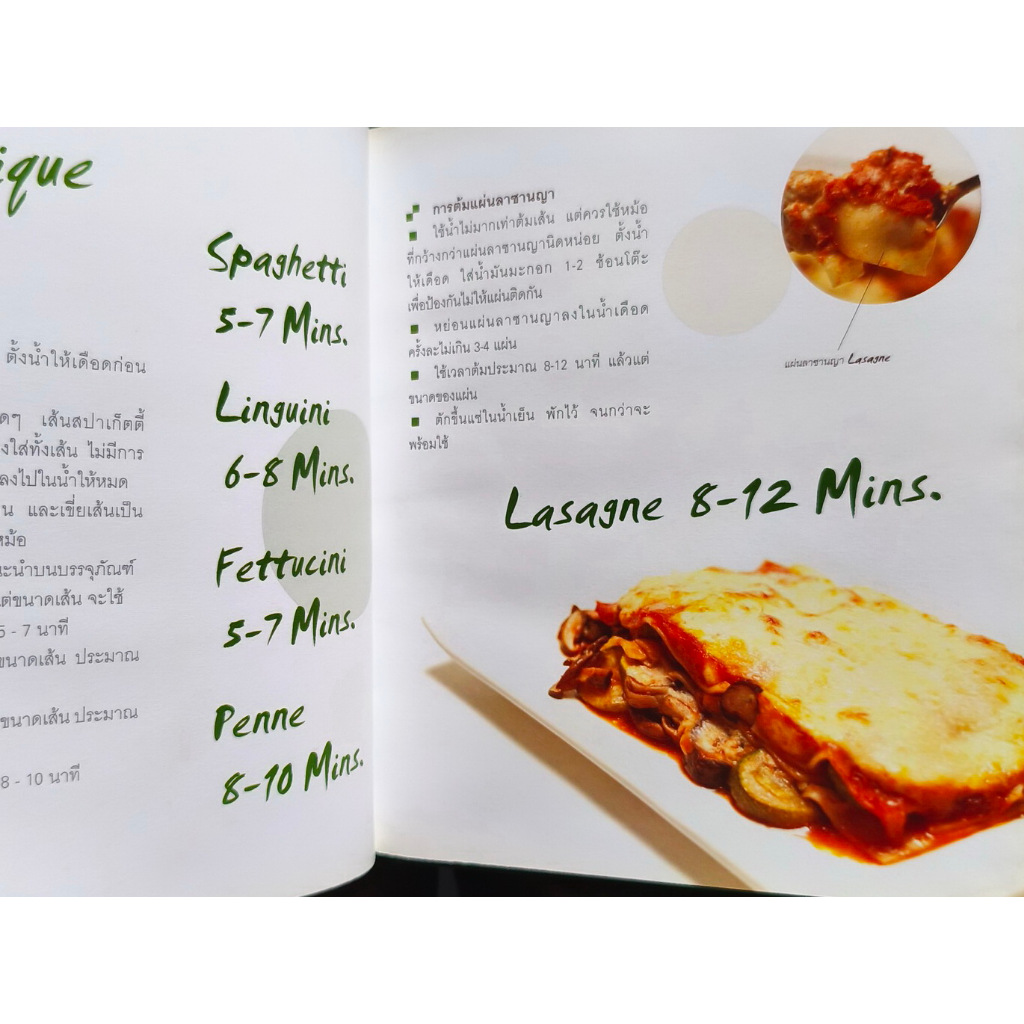 ique
ตั้งน้ำให้เดือดก่อน
ดๆ เส้นสปาเก็ตตี้
งใส่ทั้งเส้น ไม่มีการ
ลงไปในน้ำให้หมด
น และเขี่ยเส้นเป็น
หม้อ
ะนำบนบรรจุภัณฑ์
ต่ขนาดเส้น จะใช้
5 - 7 นาที
ขนาดเส้น ประมาณ
ขนาดเส้น ประมาณ
8 - 10 นาที
Spaghetti
5-7 Mins.
Linguini
6-8 Mins.
Fettucini
5-7 Mins.
Penne
8-10 Mins.
การต้มแผ่นลาซานญา
ใช้น้ำไม่มากเท่าต้มเส้น แต่ควรใช้หม้อ
ที่กว้างกว่าแผ่นลาซานญานิดหน่อย ตั้งน้ำ
ให้เดือด ใส่น้ำมันมะกอก 1-2 ช้อนโต๊ะ
เพื่อป้องกันไม่ให้แผ่นติดกัน
หย่อนแผ่นลาซานญาลงในน้ำเดือด
ครั้งละไม่เกิน 3-4 แผ่น
ใช้เวลาต้มประมาณ 8-12 นาที แล้วแต่
ขนาดของแผ่น
ตักขึ้นแช่ในน้ำเย็น พักไว้ จนกว่าจะ
พร้อมใช้
แผ่นลาซานญา Lasagne
Lasagne 8-12 Mins.